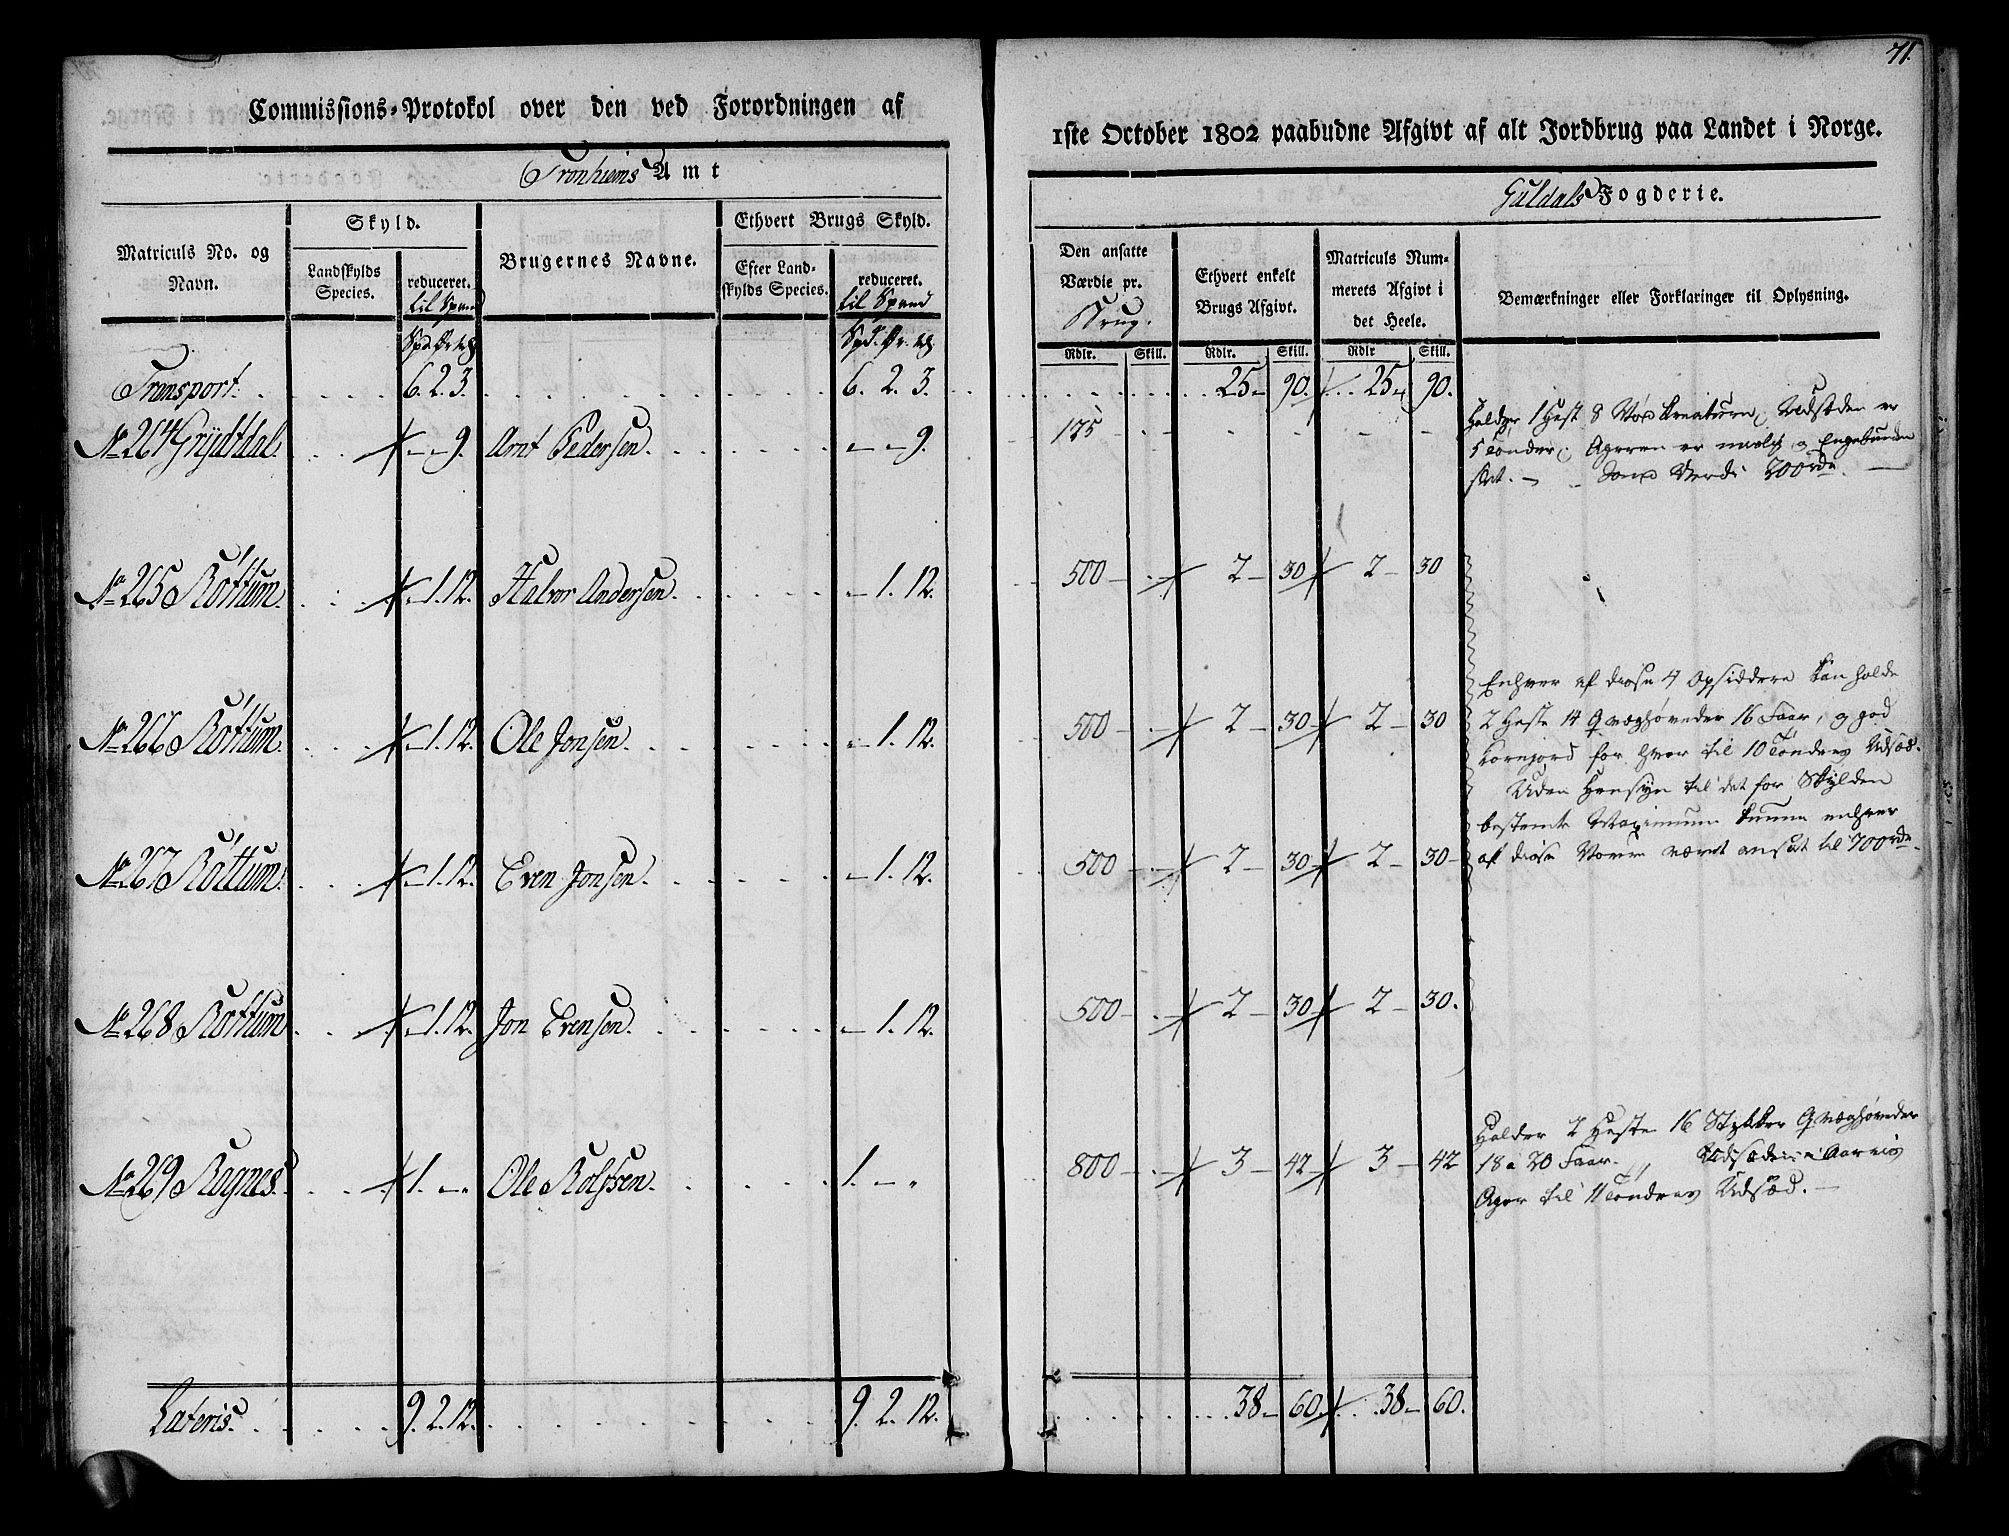 71.
Commissions-Protokol over den ved Forordningen af
1ste October 1802 paabudne Afgivt af alt Jordbrug paa Landet i Norge.
Tronhiems Amt
Guldals Fogderie.
Matriculs No. og Navn.
Skyld.
Landskylds Species.
reduceret. til Spand
Brugernes Navne.
Ethvert Brugs Skyld.
Efter Landskylds Species.
reduceret. til Spand
Den ansatte Værdie pr. Brug.
Ethvert enkelt Brugs Afgivt.
Matriculs Nummerets Afgivt i det Heele.
Bemærkninger eller Forklaringer til Oplysning.
Rdlr. Skill. Rdlr. Skill. Rdlr Skill.
Transport. 6. 2. 3. 6. 2. 3. 25 90. 25 90.
No 264 Grydtdal. 9. Arnt Pedersen. 9. 175
Holder 1 Hest 8 Kreature, Udsæden er
5 Tønder, Ageren er og Engebunden
slet. Værdi 200 rd
No 265 Rottum. 1. 12. Halvor Andersen. 1. 12. 500 2 30 2 30
No 266 Rottum. 1. 12. Ole Jonsen. 1. 12. 500 2 30 2 30
Enhver af disse 4 Opsiddere kan holde
2 Heste 14 Qvæghøveder 16 Faar, og god
Kornjord for hver til 10 Tønders Udsæd.
Uden Hensyn til det for Skylden
bestemte Maximum kunne enhver
af disse været ansat til 700 rd
No 267 Rottum. 1. 12. Even Jonsen. 1. 12. 500 2 30 2 30
No 268 Rottum 1. 12. Jon Evensen. 1. 12. 500 2 30 2 30.
No 269 Rognes. 1. Ole Rolfsen. 1. 800 3 42 3 42
Holder 2 Heste 16 Stykker Qvæghøveder
18 a 20 Faar.
Ager til 11 Tønders Udsæd.
Lateris. 9. 2. 12. 9. 2. 12. 38 60 38 60.